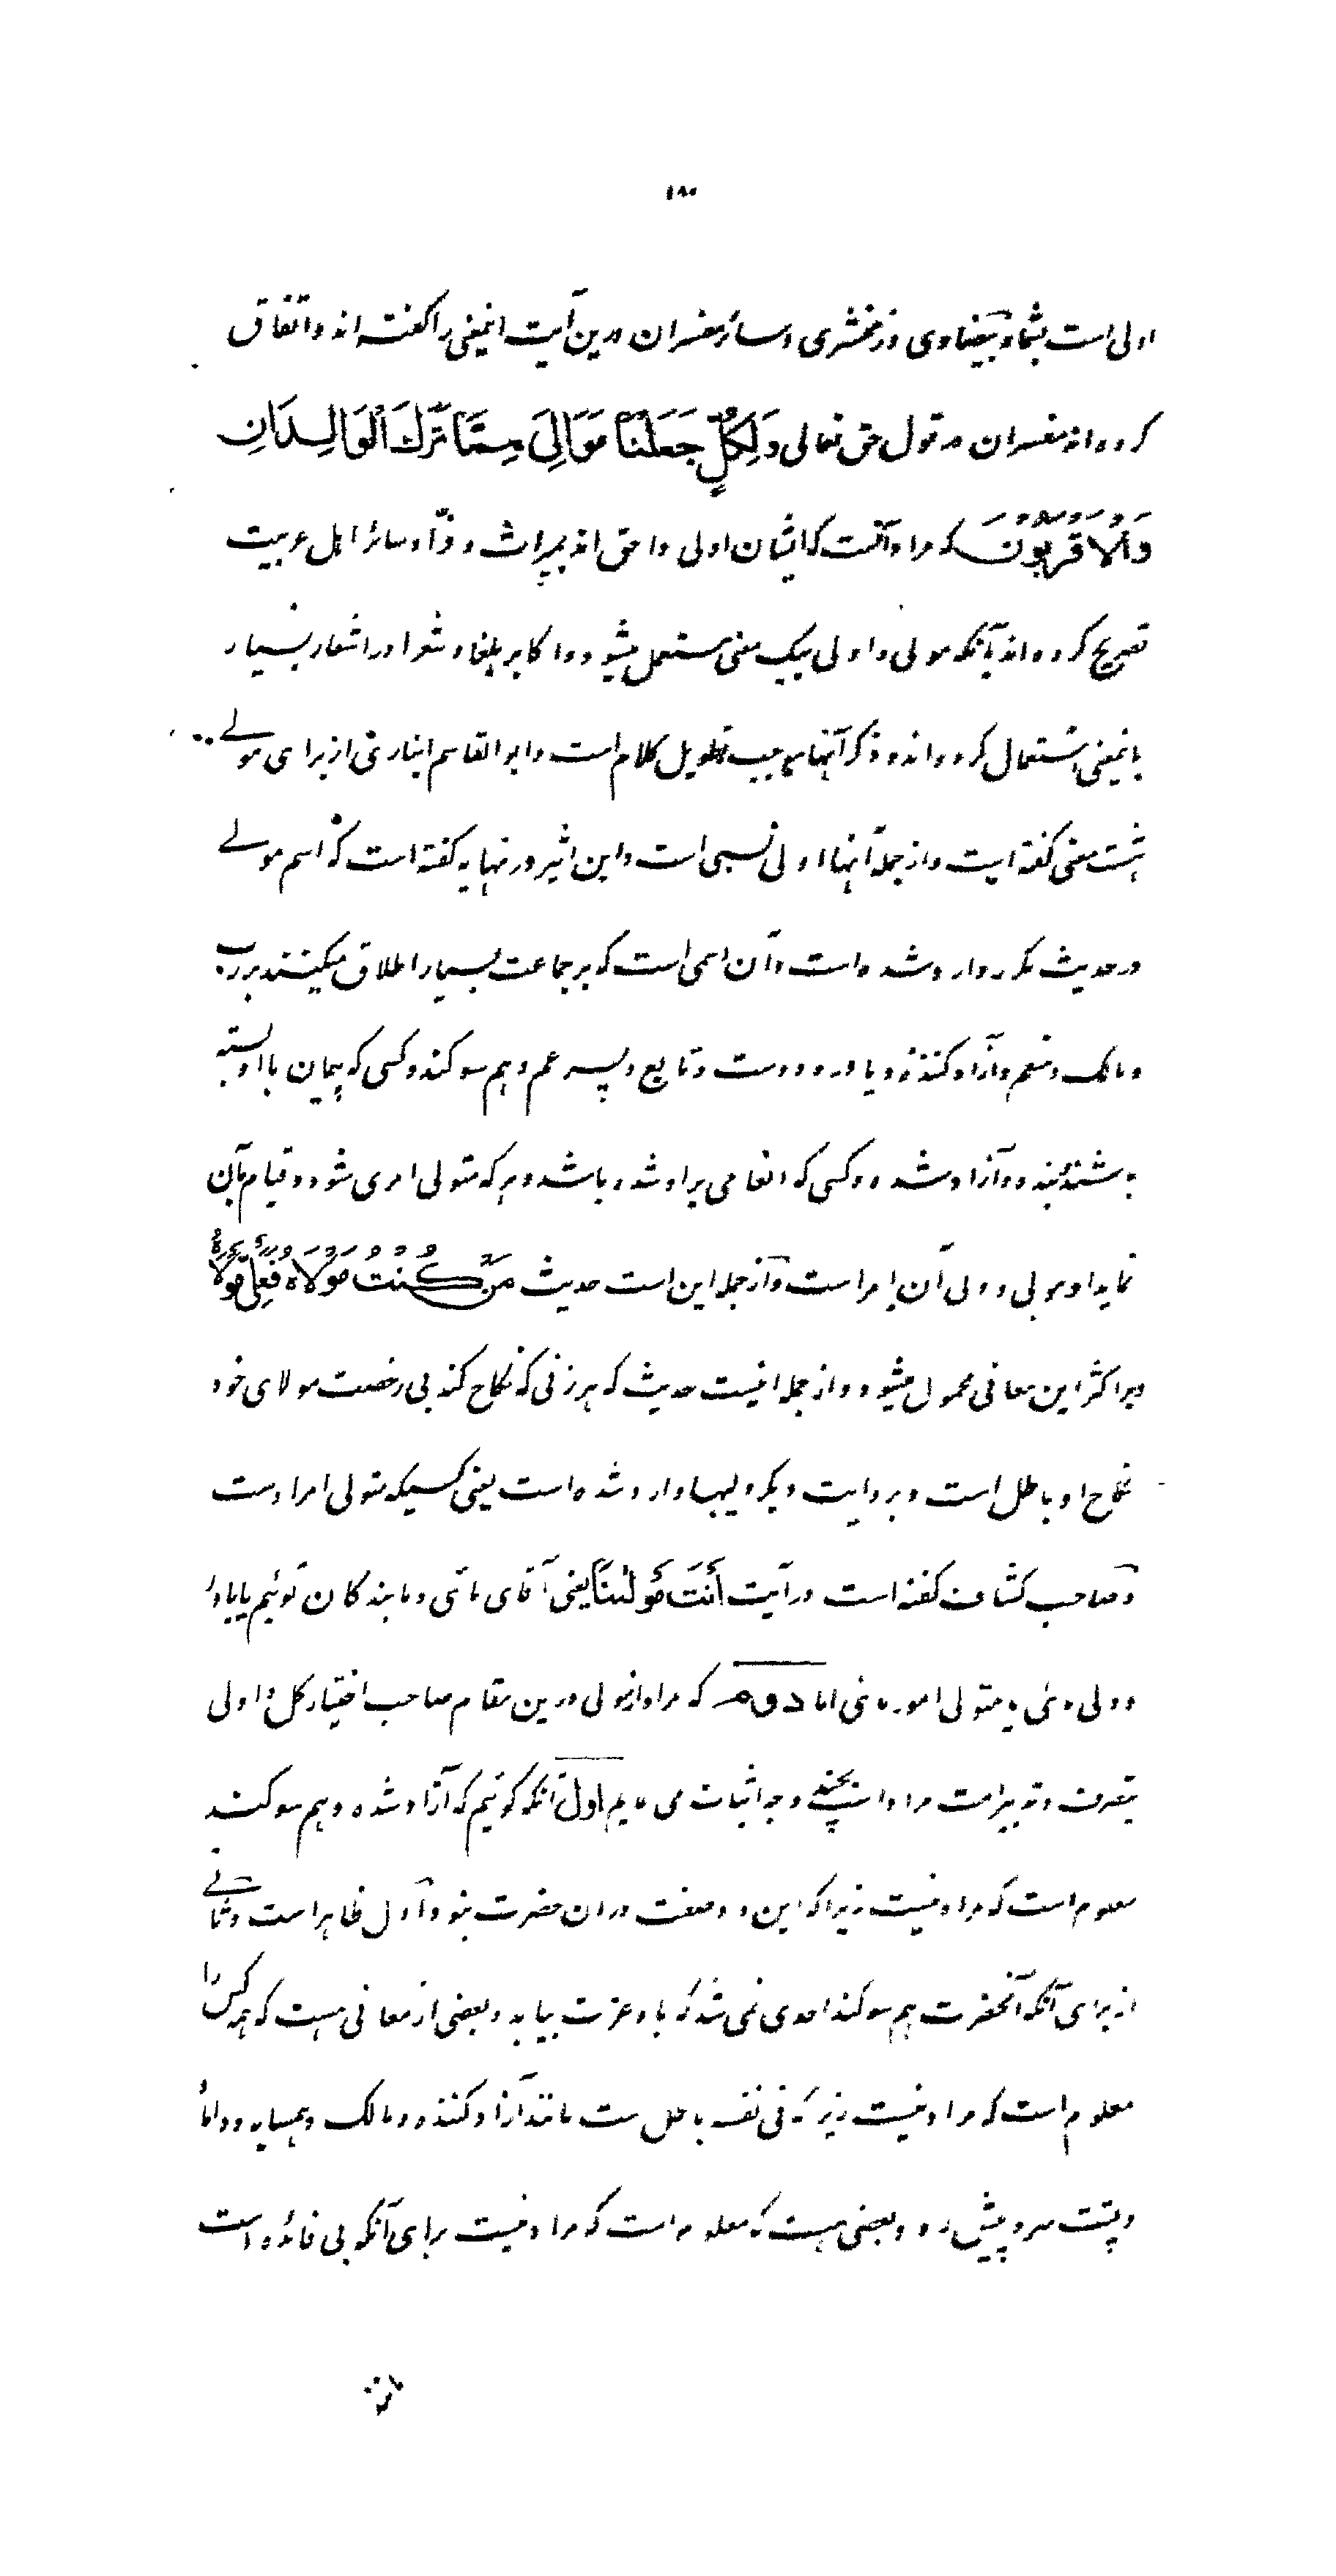 ۱۸۰
اولی است بشما و بیضاوی و زمخشری و سائر مفسران درین آیت اینمعنی را گفته اند و اتفاق
کرده اند مفسران در قول حق تعالی وَلِكُلٍّ جَعَلْنَا مَوَالِيَ مِمَّا تَرَكَ الْوَالِدَانِ
وَالْأَقْرَبُونَ که مراد آنست که ایشان اولی و احق اند بمیراث و فرّا و سائر اهل عربیت
تصریح کرده اند بآنکه مولی و اولی بیک معنی مستعمل میشود و اکابر بلغا و شعرا در اشعار بسیار
باینمعنی استعمال کرده اند و ذکر آنها موجب تطویل کلام است و ابو القاسم انباری از برای مولے
هشت معنی گفته است و از جمله آنها اولی نسبی است و ابن اثیر در نهایه گفته است که اسم مولے
در حدیث مکرر وارد شده است و آن اسمی است که بر جماعت بسیار اطلاق میکنند بر رب
و مالک و منعم و آزاد کننده و یاور و دوست و تابع و پسر عم و هم سوگند و کسی که پیمان با او بسته
باشند و بنده و آزاد شده و کسی که انعامی بر او شده باشد و هر که متولی امری شود و قیام بآن
نماید او مولی و ولی آن امر است و از جمله این است حدیث مَنْ كُنْتُ مَوْلَاهُ فَعَلِيٌّ مَوْلَاهُ
و بر اکثر این معانی محمول میشود و از جمله اینست حدیث که هر زنی که نکاح کند بی رخصت مولای خود
نکاح او باطل است و بروایت دیگر ولیها وارد شده است یعنی کسیکه متولی امر اوست
و صاحب کشاف گفته است در آیت أَنْتَ مَوْلٰىنَا یعنی آقای مائی و ما بندگان توئیم یا یاور
و ولی مائی یا متولی امور مائی اما دوم که مراد از مولی درین مقام صاحب اختیار کل و اولی
بتصرف و تدبیر امت مراد است بچند وجه اثبات می نمایم اول آنکه گوئیم که آزاد شده و هم سوگند
معلوم است که مراد نیست زیرا که این دو صفت در آن حضرت نبود و اول ظاهر است و ثانے
از برای آنکه آنحضرت هم سوگند احدی نمی شد که باو عزت بیابد و بعضی از معانی هست که هر کس را
معلوم است که مراد نیست زیرا که فی نفسه باطل ست مانند آزاد کننده و مالک و همسایه و داماد
و پشت سر و پیش رو و بعضی هست که معلوم است که مراد نیست برای آنکه بی فائده است